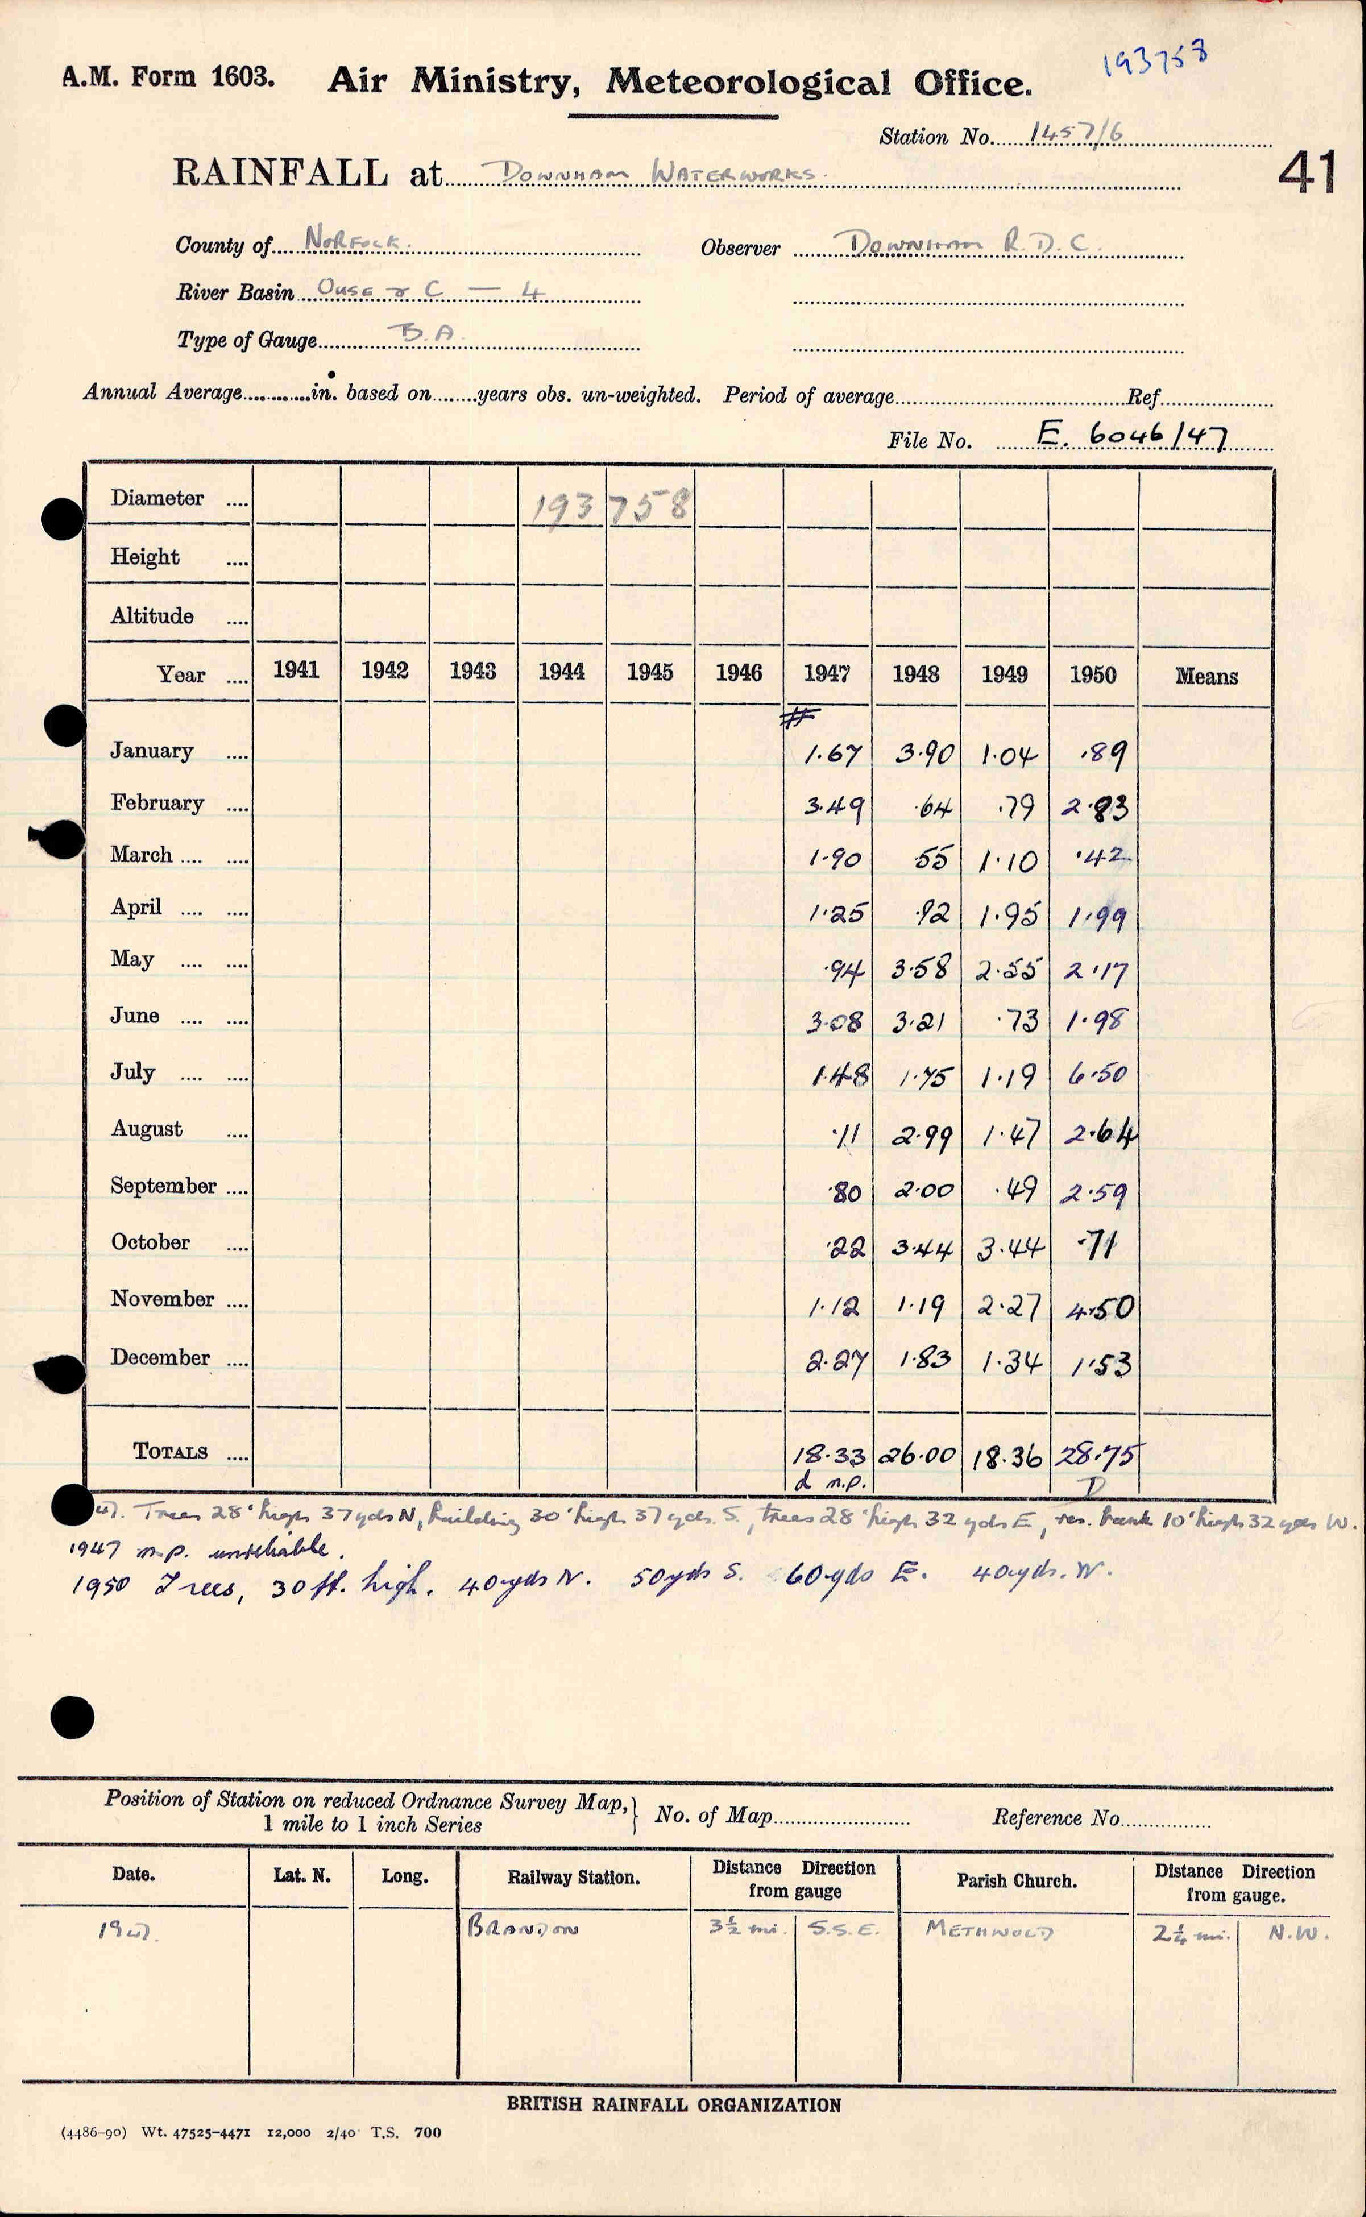 193758
A.M. Form 1603. Air Ministry, Meteorological Office.
Station No. 1457/6
RAINFALL at DOWNHAM WATERWORKS. 41
County of NORFOLK. Observer DOWNHAM R.D.C.
River Basin OUSE & C — 4
Type of Gauge B.A.
Annual Average in. based on years obs. un-weighted. Period of average Ref
File No. E. 6046/47
Diameter .... 193758
Height ....
Altitude ....
Year .... 1941 1942 1943 1944 1945 1946 1947 1948 1949 1950 Means
#
January .... 1.67 3.90 1.04 .89
February .... 3.49 .64 .79 2.83
March .... .... 1.90 55 1.10 .42
April .... .... 1.25 .92 1.95 1.99
May .... .... .94 3.58 2.55 2.17
June .... .... 3.08 3.21 .73 1.98
July .... .... 1.48 1.75 1.19 6.50
August .... .11 2.99 1.47 2.64
September .... .80 2.00 .49 2.59
October .... .22 3.44 3.44 .71
November .... 1.12 1.19 2.27 4.50
December .... 2.27 1.83 1.34 1.53
TOTALS .... 18.33 26.00 18.36 28.75
d n.p. D
47. Trees 28' high 37 yds N, building 30' high 37 yds. S., trees 28' high 32 yds E, res. bank 10' high 32 yds W.
1947 n.p. unreliable.
1950 Trees, 30 ft. high. 40 yds N. 50 yds S. 60 yds E. 40 yds. W.
Position of Station on reduced Ordnance Survey Map, } No. of Map Reference No.
1 mile to 1 inch Series
Date. Lat. N. Long. Railway Station. Distance Direction from gauge Parish Church. Distance Direction from gauge.
1947. BRANDON 3½ mi. S.S.E. METHWOLD 2¼ mi. N.W.
BRITISH RAINFALL ORGANIZATION
(4486-90) Wt. 47525-4471 12,000 2/40 T.S. 700